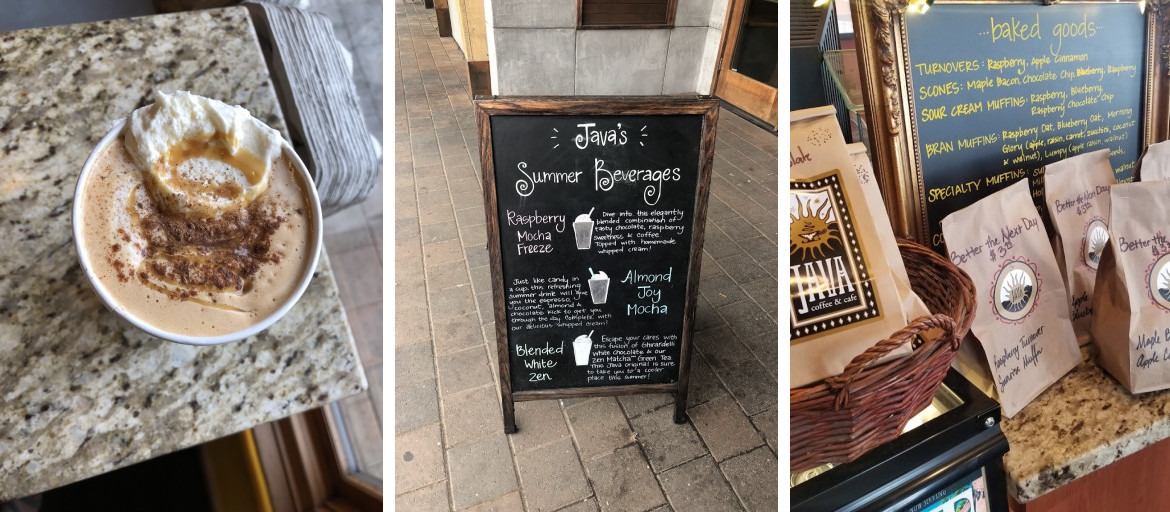 Java's
Summer Beverages
Raspberry
Mocha
Freeze
Dive into this elegantly
blended combination of
tasty chocolate, raspberry
sweetness & coffee.
Topped with homemade
whipped cream!
Just like candy in
a cup, this refreshing
summer drink will give
you the espresso,
coconut, almond &
chocolate kick to get you
through the day. Complete with
our delicious whipped cream!
Almond
Joy
Mocha
Blended
White
Zen
Escape your cares with
this fusion of Ghirardelli
White Chocolate & our
Zen Matcha Green Tea.
This Java original is sure
to take you to a cooler
place this summer!
...baked goods...
TURNOVERS: Raspberry, Apple Cinnamon
SCONES: Maple Bacon, Chocolate Chip, Blueberry, Raspberry
SOUR CREAM MUFFINS: Raspberry, Blueberry,
Raspberry Chocolate Chip
BRAN MUFFINS: Raspberry Oat, Blueberry Oat, Morning
Glory (apple, raisin, carrot, zucchini, coconut
& walnut), Lumpy (apple, raisin, walnut)
SPECIALTY MUFFINS:
JAVA
coffee & cafe
Better the Next Day
Raspberry Turnover
Better the Next Day
Better the Next Day
Maple
Apple
NOW SERVING